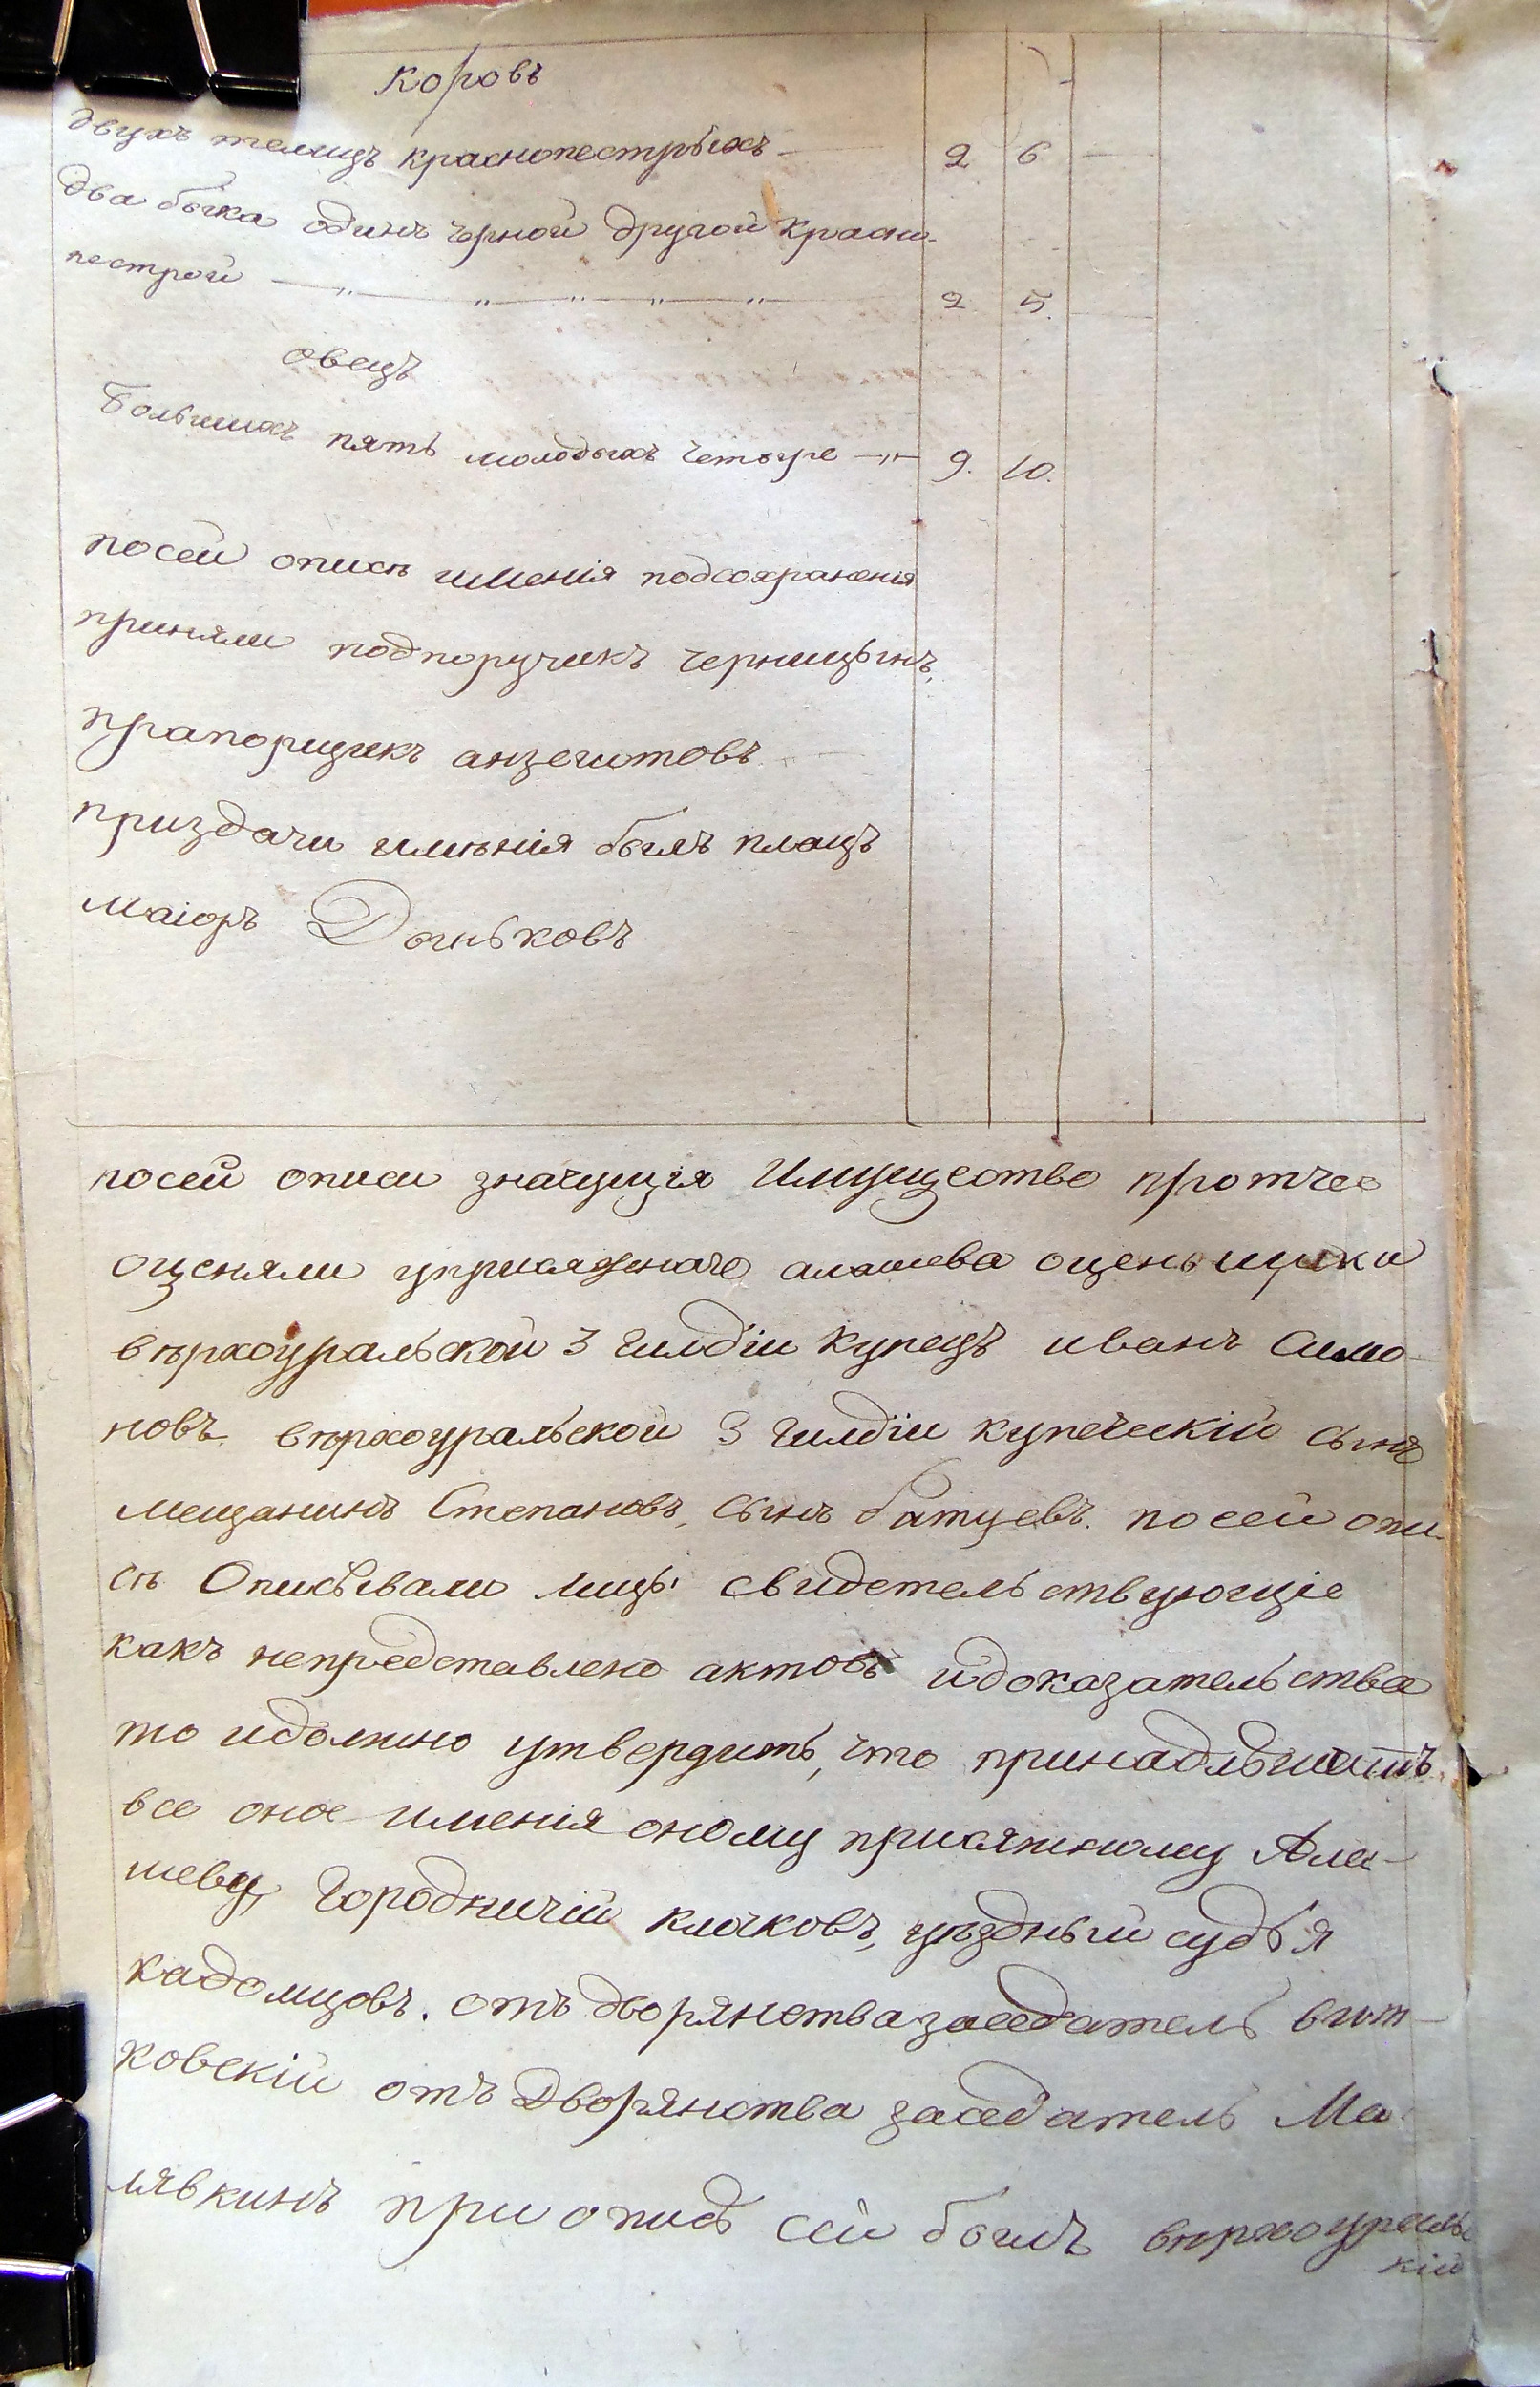 коровъ
двухъ телицъ краснопестрыхъ — 2 6 —
два бычка одинъ чорной другой красно-
пестрой — „ — „ — „ — „ — „ 2 5. —
овецъ
большихъ пять молодыхъ четыре —„— 9. 10.
посей описѣ имения подсохранения
приняли подпоручикъ черницынъ,
прапорщикъ
приздачи имѣнія былъ плацъ
маіоръ Дыньковъ
посей описи значущія имущество протчее
оценяли уприсяжнаго алашева оценьщики
вѣрхоуральской 3 гилдіи купецъ иванъ Симо-
новъ вѣрхоуральской 3 гилдіи купеческій сынъ
мещанинъ Степановъ, сынъ посей опи-
сѣ Описывали лицы свидетельствующіе
какъ непредставлено актовъ идоказательства
то идолжно утвердить, что принадлежитъ
все оное имения оному присяжному Ала-
шеву, Городничій клочковъ, уѣздный судья
кадомцовъ. отъ дворянства заседатель вит-
ковскій отъ Дворянства заседатель Ма-
лявкинъ при описѣ сей былъ вѣрхоураль-
скій